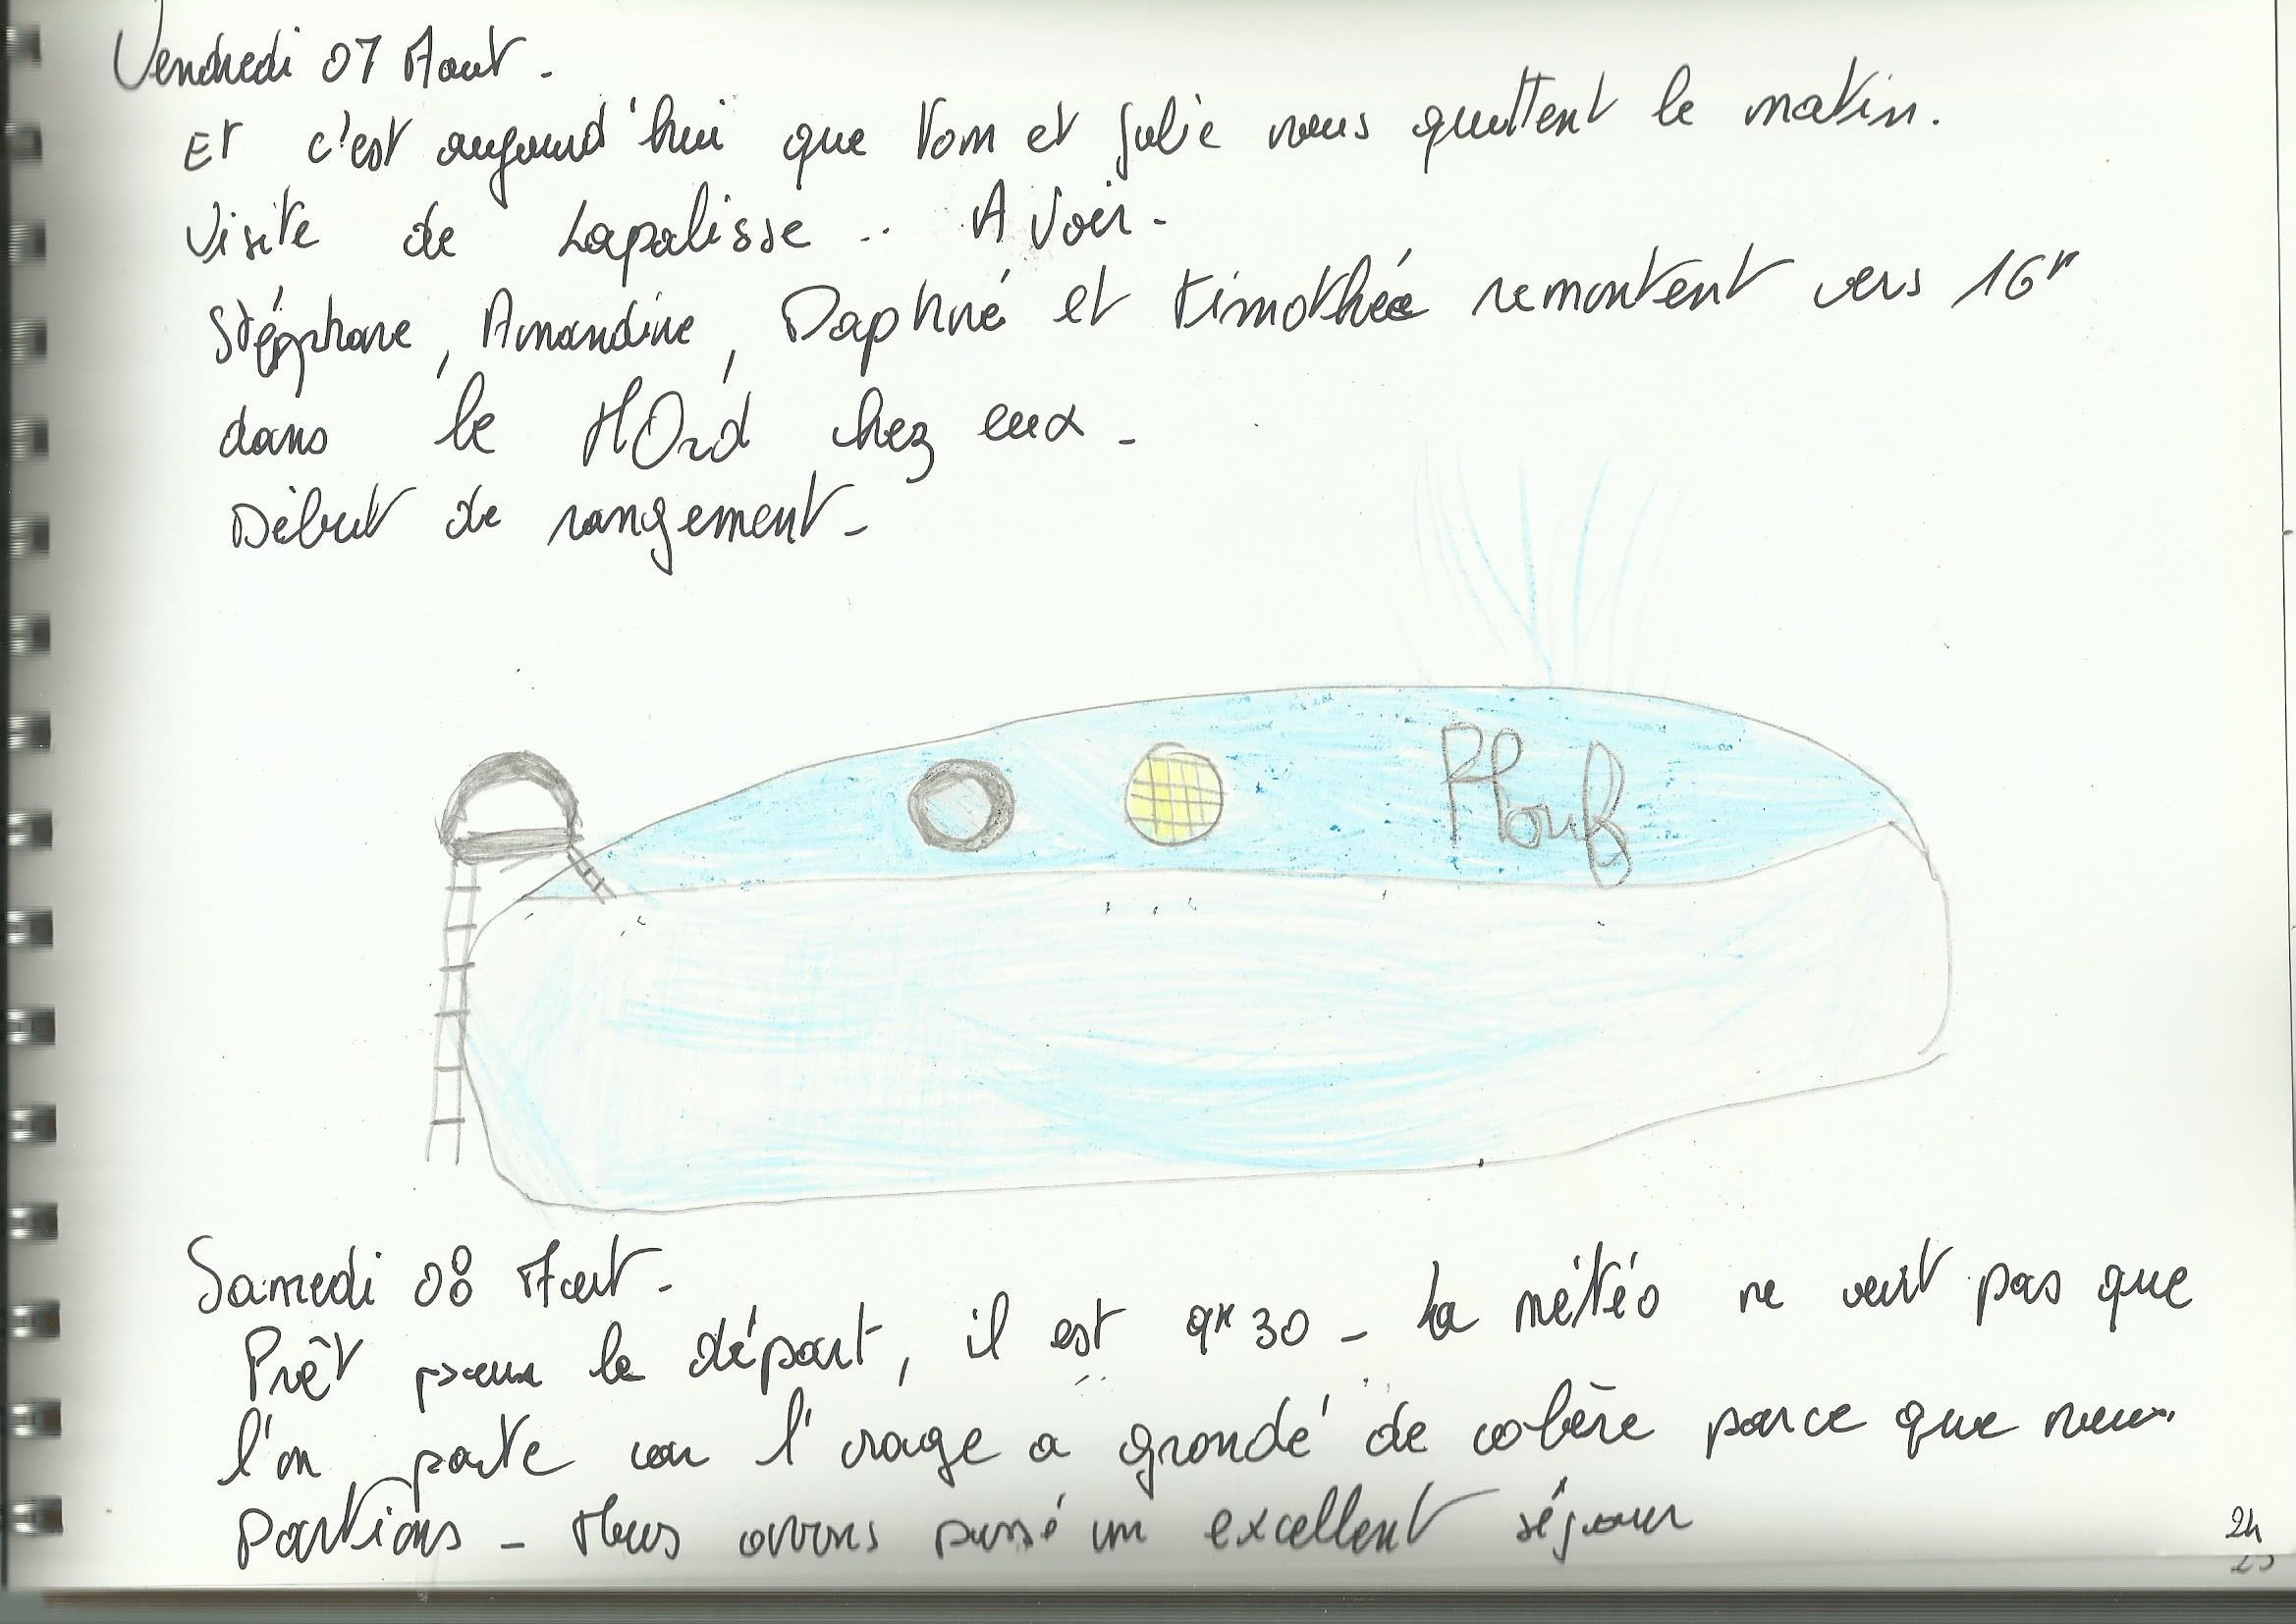 Vendredi 07 Aout -
Et c'est aujourd'hui que Tom et Julie nous quittent le matin.
Visite de Lapalisse .. A Voir -
Stéphane, Amandine, Daphné et Timothée remontent vers 16H
dans le NOrd chez eux -
Début de rangement -
Plouf
Samedi 08 Aout -
Prêt pour le départ, il est 9H30 - La météo ne veut pas que
l'on parte car l'orage a grondé de colère parce que nous
partions - Nous avons passé un excellent séjour
24
25